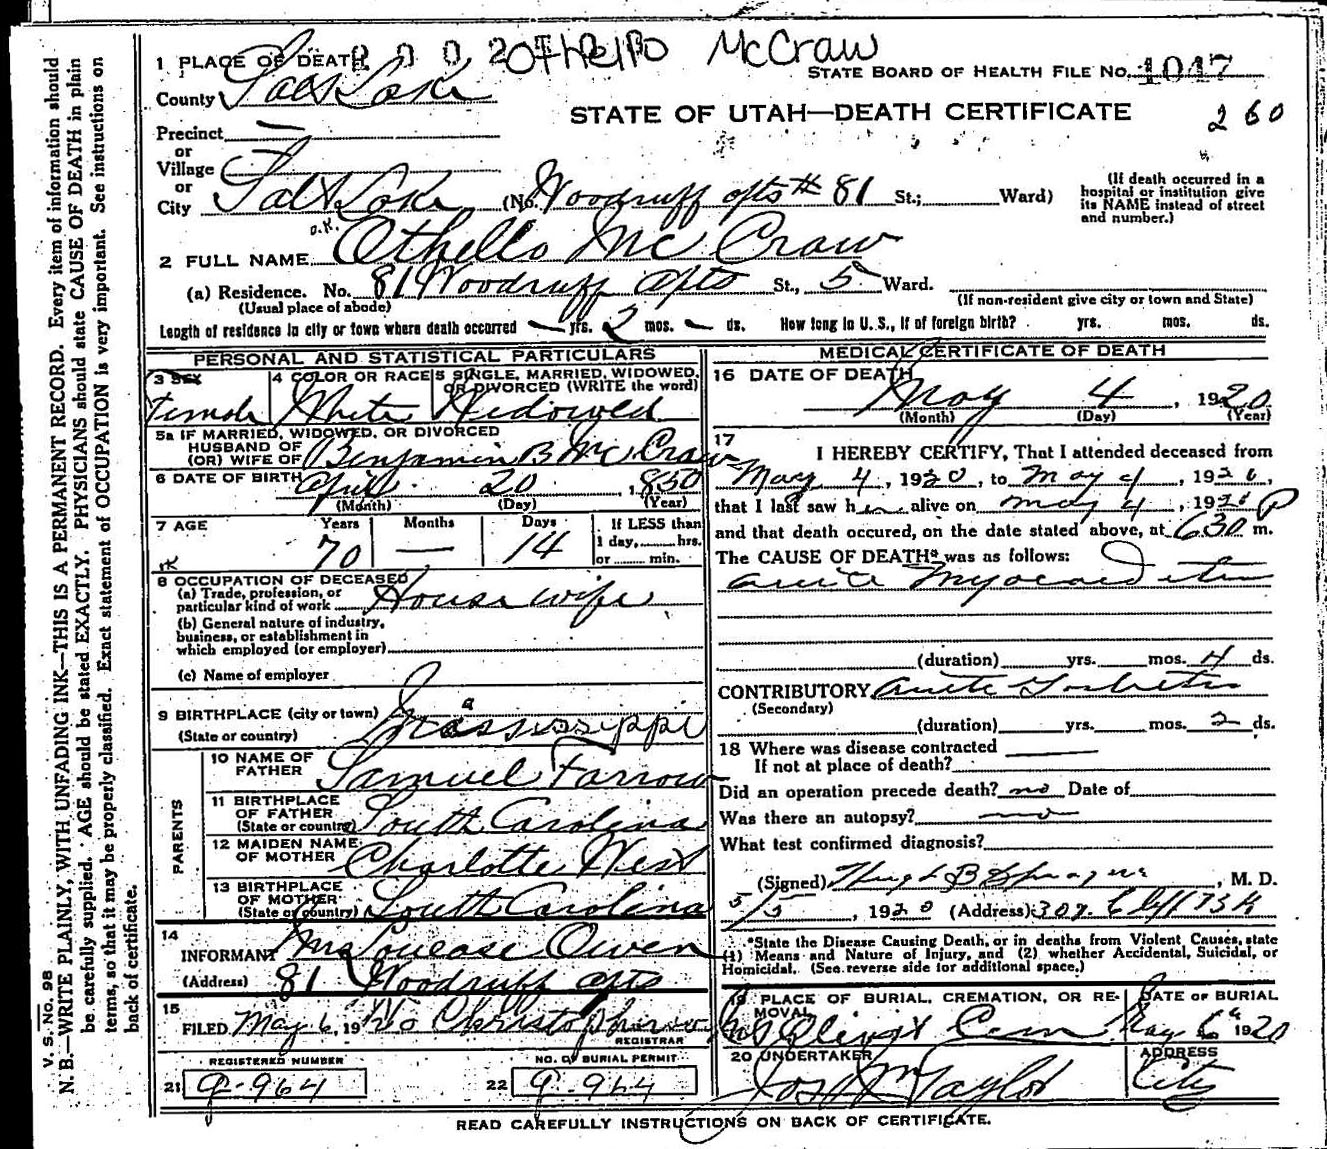 Othello McCraw
1 PLACE OF DEATH
STATE BOARD OF HEALTH FILE NO. 1047
County Salt Lake
STATE OF UTAH—DEATH CERTIFICATE
260
Precinct —
or
Village —
or
City Salt Lake (No. Woodruff apts # 81 St.; Ward)
(If death occurred in a hospital or institution give its NAME instead of street and number.)
o.k.
2 FULL NAME Othello Mc Craw
(a) Residence. No. 81 Woodruff Apts St., 5 Ward.
(Usual place of abode)
(If non-resident give city or town and State)
Length of residence in city or town where death occurred — yrs. 2 mos. — ds. How long in U.S., if of foreign birth? yrs. mos. ds.
PERSONAL AND STATISTICAL PARTICULARS
3 SEX
Female
4 COLOR OR RACE
White
5 SINGLE, MARRIED, WIDOWED, OR DIVORCED (WRITE the word)
Widowed
5a IF MARRIED, WIDOWED, OR DIVORCED
HUSBAND OF
(OR) WIFE OF Benjamin B Mc Craw
6 DATE OF BIRTH April 20, 1850
(Month) (Day) (Year)
7 AGE
Years Months Days
70 — 14
If LESS than
1 day, hrs.
or min.
8 OCCUPATION OF DECEASED
(a) Trade, profession, or
particular kind of work House wife
(b) General nature of industry,
business, or establishment in
which employed (or employer)
(c) Name of employer
9 BIRTHPLACE (city or town)
(State or country) Mississippi
PARENTS
10 NAME OF
FATHER Samuel Farrow
11 BIRTHPLACE
OF FATHER
(State or country) South Carolina
12 MAIDEN NAME
OF MOTHER Charlotte West
13 BIRTHPLACE
OF MOTHER
(State or country) South Carolina
14
INFORMANT Mrs Louease Owen
(Address) 81 Woodruff apts
15
FILED May 6, 19
REGISTRAR
REGISTERED NUMBER
21 9-964
NO. OF BURIAL PERMIT
22 9-964
MEDICAL CERTIFICATE OF DEATH
16 DATE OF DEATH
May 4, 1920
(Month) (Day) (Year)
17
I HEREBY CERTIFY, That I attended deceased from
May 4, 1920, to May 4, 1920,
that I last saw her alive on May 4, 1920
and that death occured, on the date stated above, at 630 P m.
The CAUSE OF DEATH* was as follows:
acute Myocarditis
(duration) yrs. mos. 4 ds.
CONTRIBUTORY acute
(Secondary)
(duration) yrs. mos. 2 ds.
18 Where was disease contracted
If not at place of death?
Did an operation precede death? no Date of
Was there an autopsy? no
What test confirmed diagnosis?
(Signed) Hugh B Sprague, M. D.
5/5, 1920 (Address)
*State the Disease Causing Death, or in deaths from Violent Causes, state
(1) Means and Nature of Injury, and (2) whether Accidental, Suicidal, or
Homicidal. (See reverse side for additional space.)
19 PLACE OF BURIAL, CREMATION, OR REMOVAL
Mt Olivet Cem
DATE OF BURIAL
May 6 1920
20 UNDERTAKER
Jos Wm Taylor
ADDRESS
City
READ CAREFULLY INSTRUCTIONS ON BACK OF CERTIFICATE.
V. S. No. 98
N. B.—WRITE PLAINLY, WITH UNFADING INK—THIS IS A PERMANENT RECORD. Every item of information should
be carefully supplied. AGE should be stated EXACTLY. PHYSICIANS should state CAUSE OF DEATH in plain
terms, so that it may be properly classified. Exact statement of OCCUPATION is very important. See instructions on
back of certificate.